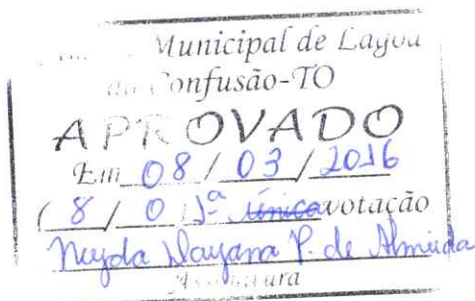 Municipal de Lagoa
da Confusão-TO
APROVADO
Em 08 / 03 / 2016
( 8 / 0 ) 1ª única votação
Dayana P. de Almeida
Assinatura